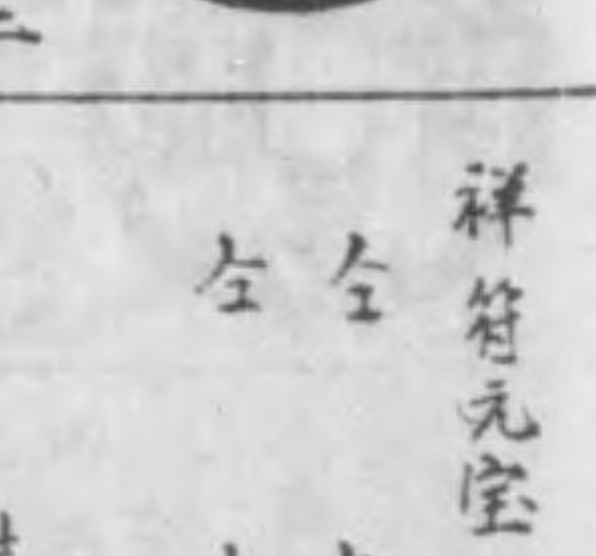 祥符元宝
仝
仝
二